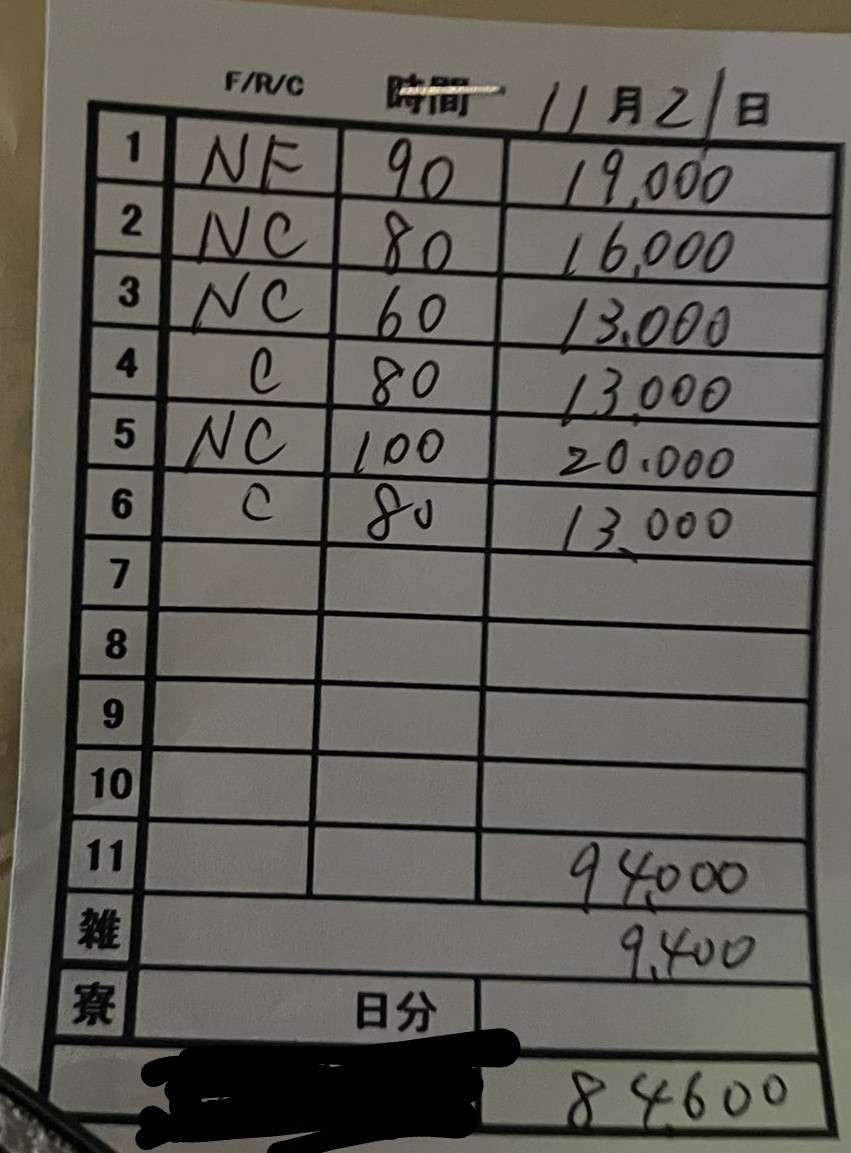 F/R/C 時間 11月21日
1 NF 90 19,000
2 NC 80 16,000
3 NC 60 13,000
4 C 80 13,000
5 NC 100 20,000
6 C 80 13,000
7
8
9
10
11 94,000
雑 9,400
寮 日分
84,600